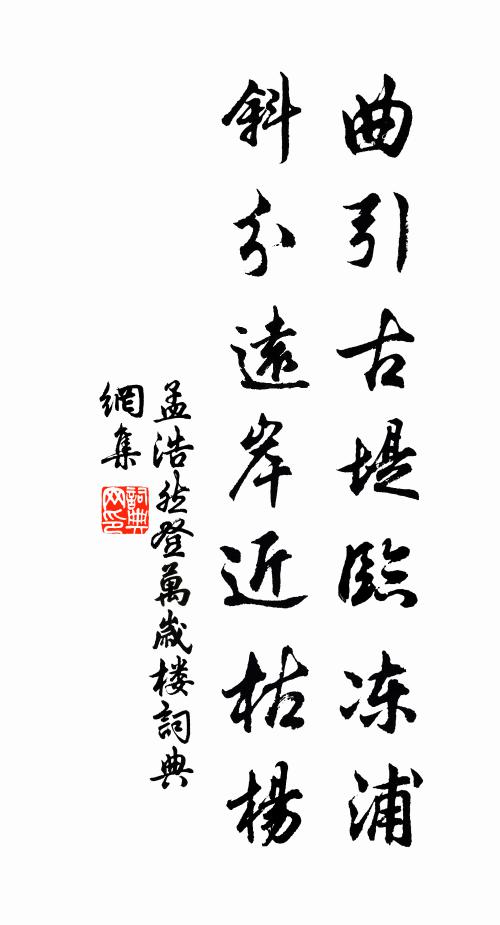 曲引古堤臨冻浦
斜分遠岸近枯楊
孟浩然登萬歲楼詞典
網集
詞典
网印